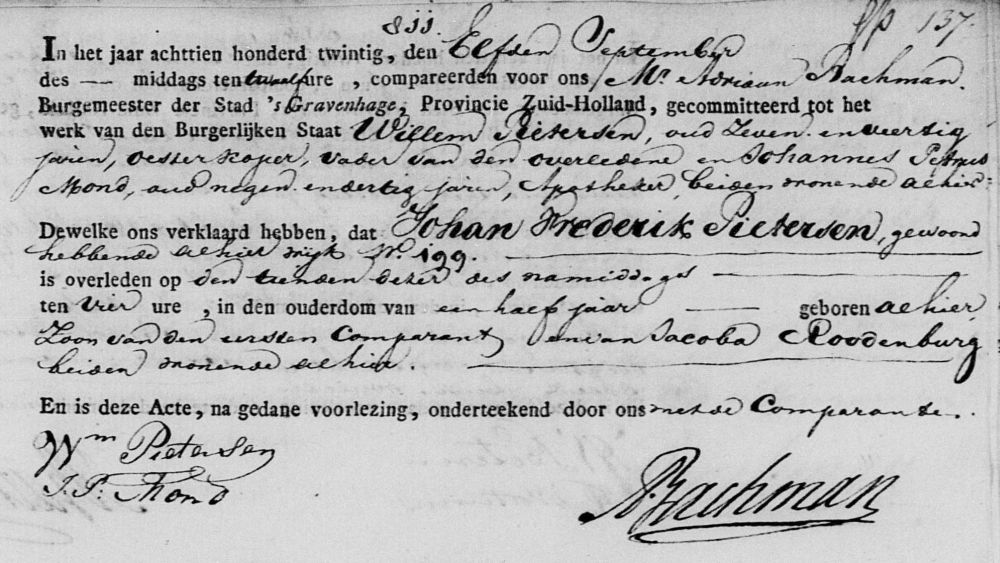 811.
137.
In het jaar achttien honderd twintig, den Elfden September
des — middags ten twaalf ure , compareerden voor ons, Mr. Adriaan Bachman.
Burgemeester der Stad 's Gravenhage, Provincie Zuid-Holland, gecommitteerd tot het
werk van den Burgerlijken Staat Willem Pietersen, oud Zeven en veertig
jaren, oesterkoper, vader van den overledene en Johannes Petrus
Mond, oud negen en dertig jaren, Apotheker, beiden wonende alhier
Dewelke ons verklaard hebben, dat Johan Frederik Pietersen, gewoond
hebbende alhier wijk No. 199.
is overleden op den tienden dezer des namiddags
ten vier ure , in den ouderdom van een half jaar — geboren alhier,
Zoon van den eersten Comparant, en van Jacoba Roodenburg
beiden wonende alhier.
En is deze Acte, na gedane voorlezing, onderteekend door ons met de Comparanten.
Wm Pietersen
J. P. Mond
A Bachman